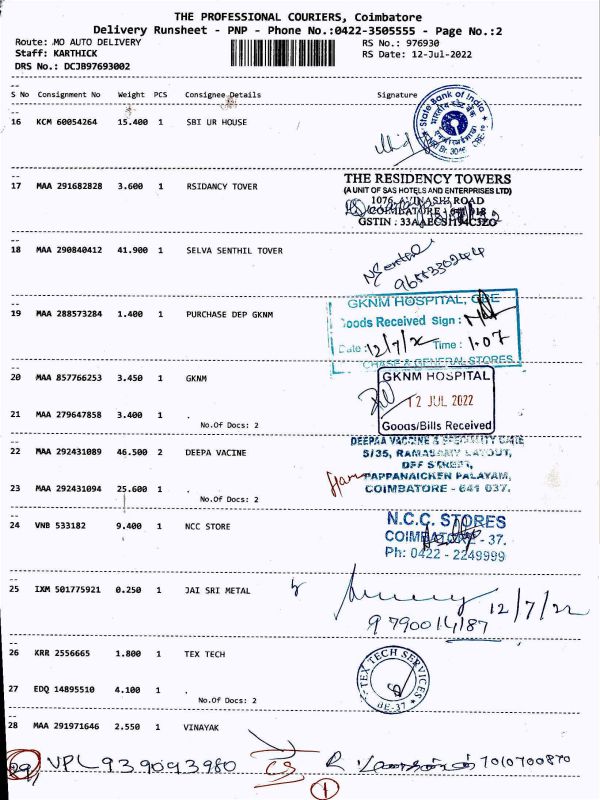 THE PROFESSIONAL COURIERS, Coimbatore
Delivery Runsheet - PNP - Phone No.:0422-3505555 - Page No.:2
Route: MO AUTO DELIVERY
RS No.: 976930
Staff: KARTHICK
RS Date: 12-Jul-2022
DRS No.: DCJB97693002
S No Consignment No Weight PCS Consignee Details Signature
16 KCM 60054264 15.400 1 SBI UR HOUSE
State Bank of India
17 MAA 291682828 3.600 1 RSIDANCY TOVER
THE RESIDENCY TOWERS
(A UNIT OF SAS HOTELS AND ENTERPRISES LTD)
1076, AVINASHI ROAD
COIMBATORE - 641 018
GSTIN : 33AAECS1194C3ZO
18 MAA 290840412 41.900 1 SELVA SENTHIL TOVER
19 MAA 288573284 1.400 1 PURCHASE DEP GKNM
GKNM HOSPITAL, CBE
Goods Received Sign :
Date : 12/7/2 Time : 1.07
20 MAA 857766253 3.450 1 GKNM
GKNM HOSPITAL
12 JUL 2022
Goods/Bills Received
21 MAA 279647858 3.400 1 .
No.Of Docs: 2
22 MAA 292431089 46.500 2 DEEPA VACINE
DEEPAA VACCINE & SPECIALITY CARE
5/35, RAMASAMY LAYOUT,
OFF STREET,
PAPPANAICKEN PALAYAM,
COIMBATORE - 641 037.
23 MAA 292431094 25.600 1 .
No.Of Docs: 2
24 VNB 533182 9.400 1 NCC STORE
N.C.C. STORES
COIMBATORE - 37.
Ph: 0422 - 2249999
25 IXM 501775921 0.250 1 JAI SRI METAL
12/7/22
9790014187
26 KRR 2556665 1.800 1 TEX TECH
TEX TECH SERVICES
CBE-37
27 EDQ 14895510 4.100 1 .
No.Of Docs: 2
28 MAA 291971646 2.550 1 VINAYAK
29 VPL 939093980 R 7010700870
1